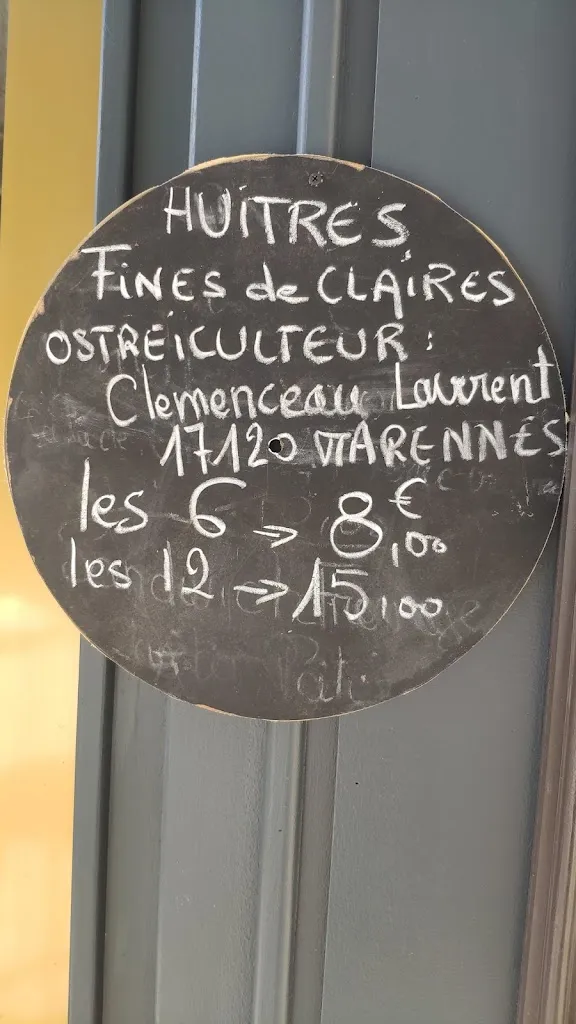 HUÎTRES
FiNES de CLAIRES
OSTRÉiCULTEUR :
Clemenceau Laurent
17120 MARENNES
les 6 → 8,00 €
les 12 → 15,00